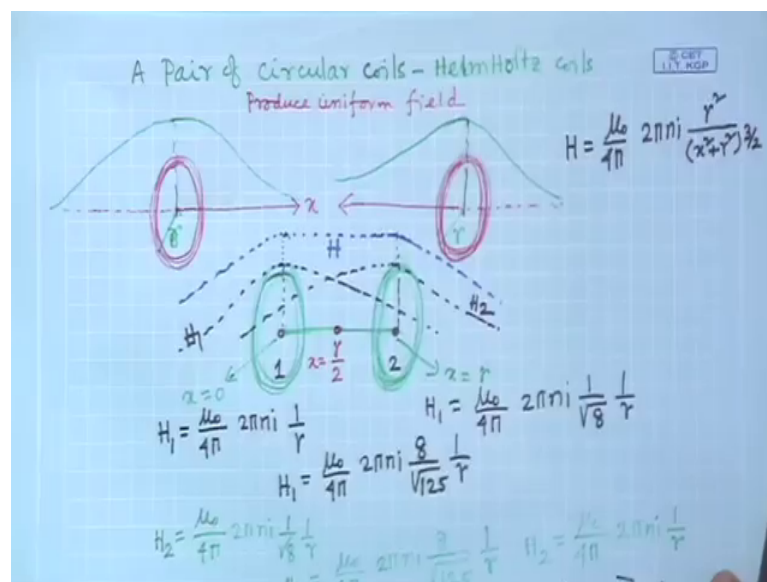 A Pair of circular coils - HelmHoltz coils
© CET
I.I.T. KGP
Produce uniform field
H = μ₀/4π 2πni r²/(x²+r²)^3/2
x
r
r
H
H₁
H₂
1
x = r/2
2
x = 0
x = r
H₁ = μ₀/4π 2πni 1/r
H₁ = μ₀/4π 2πni 1/√8 1/r
H₁ = μ₀/4π 2πni 8/√125 1/r
H₂ = μ₀/4π 2πni 1/√8 1/r
H₂ = μ₀/4π 2πni 1/r
= μ₀/4π 2πni 8/√125 1/r